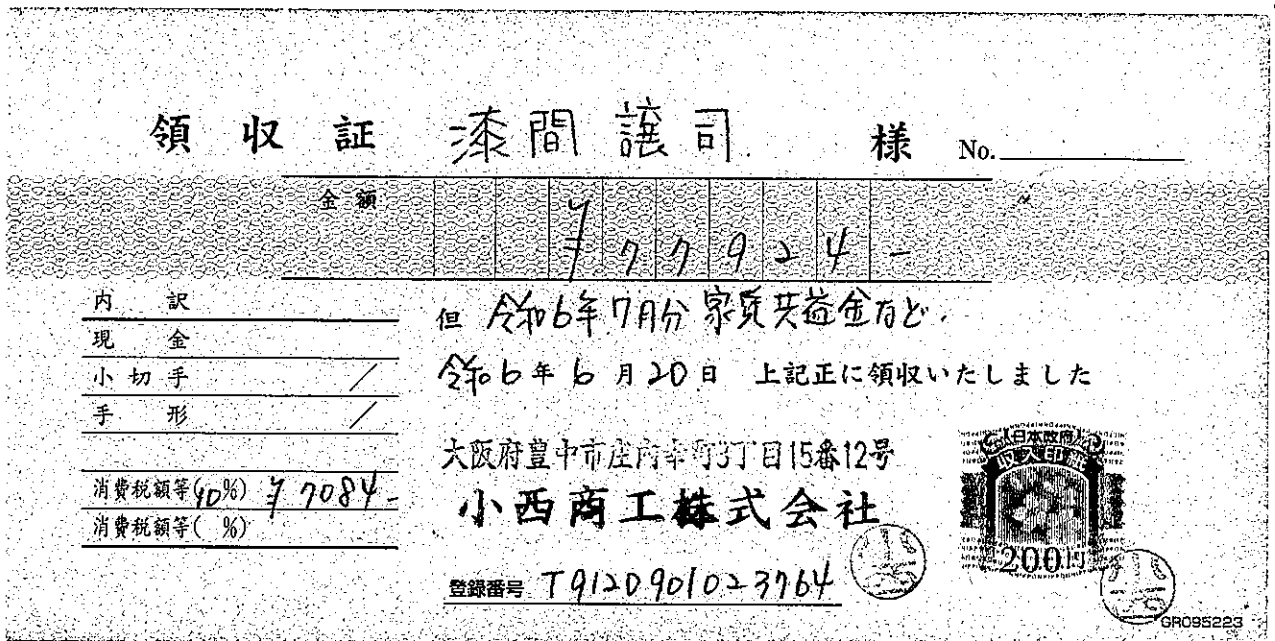 領収証 漆間 譲司 様 No.
金額 ¥77924-
内訳
現金
小切手 /
手形 /
消費税額等(10%) ¥7084-
消費税額等( %)
但 令和6年7月分 家賃共益金など.
令和6年6月20日 上記正に領収いたしました
大阪府豊中市庄内幸町3丁目15番12号
小西商工株式会社
登録番号 T9120901023764
日本政府
収入印紙
200円
GR095223